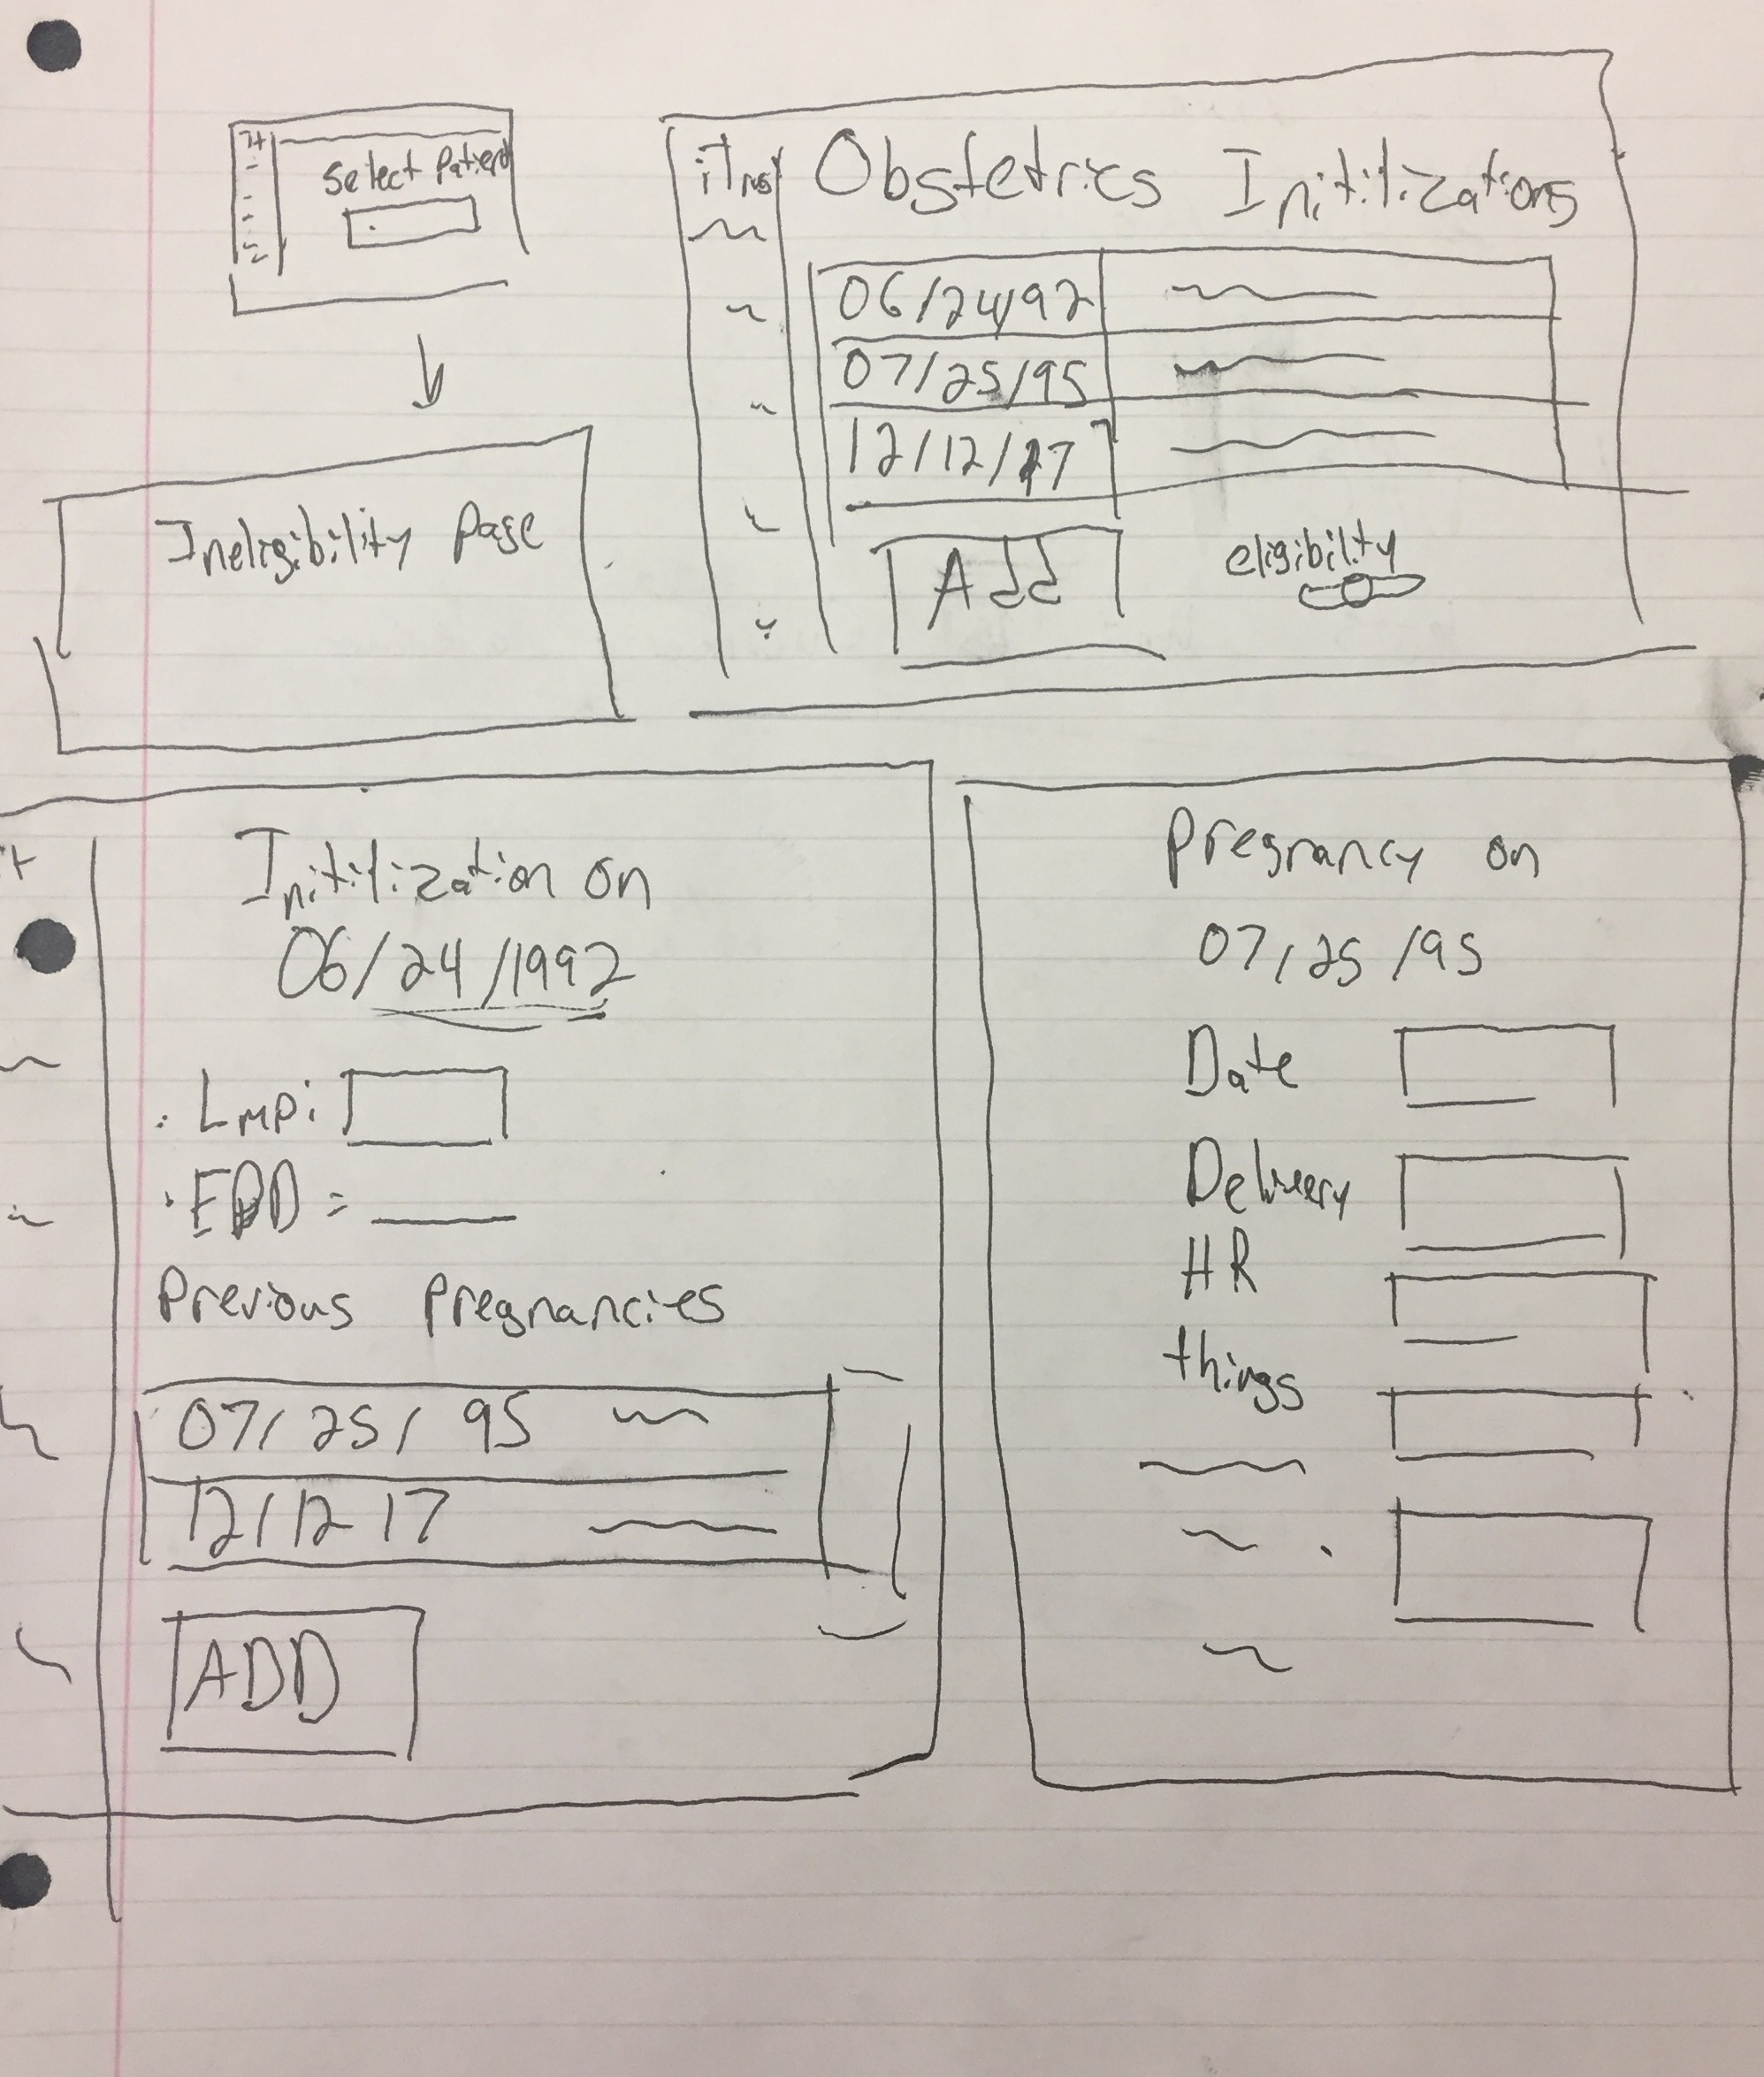 Select Patient
Ineligibility Page
iTrus
Obstetrics Initilizations
06/24/92
07/25/95
12/12/17
Add
eligibility
Initilization on
06/24/1992
Lmp:
EDD =
Previous Pregnancies
07/25/95
12/12 17
ADD
Pregnancy on
07/25/95
Date
Delivery
HR
things